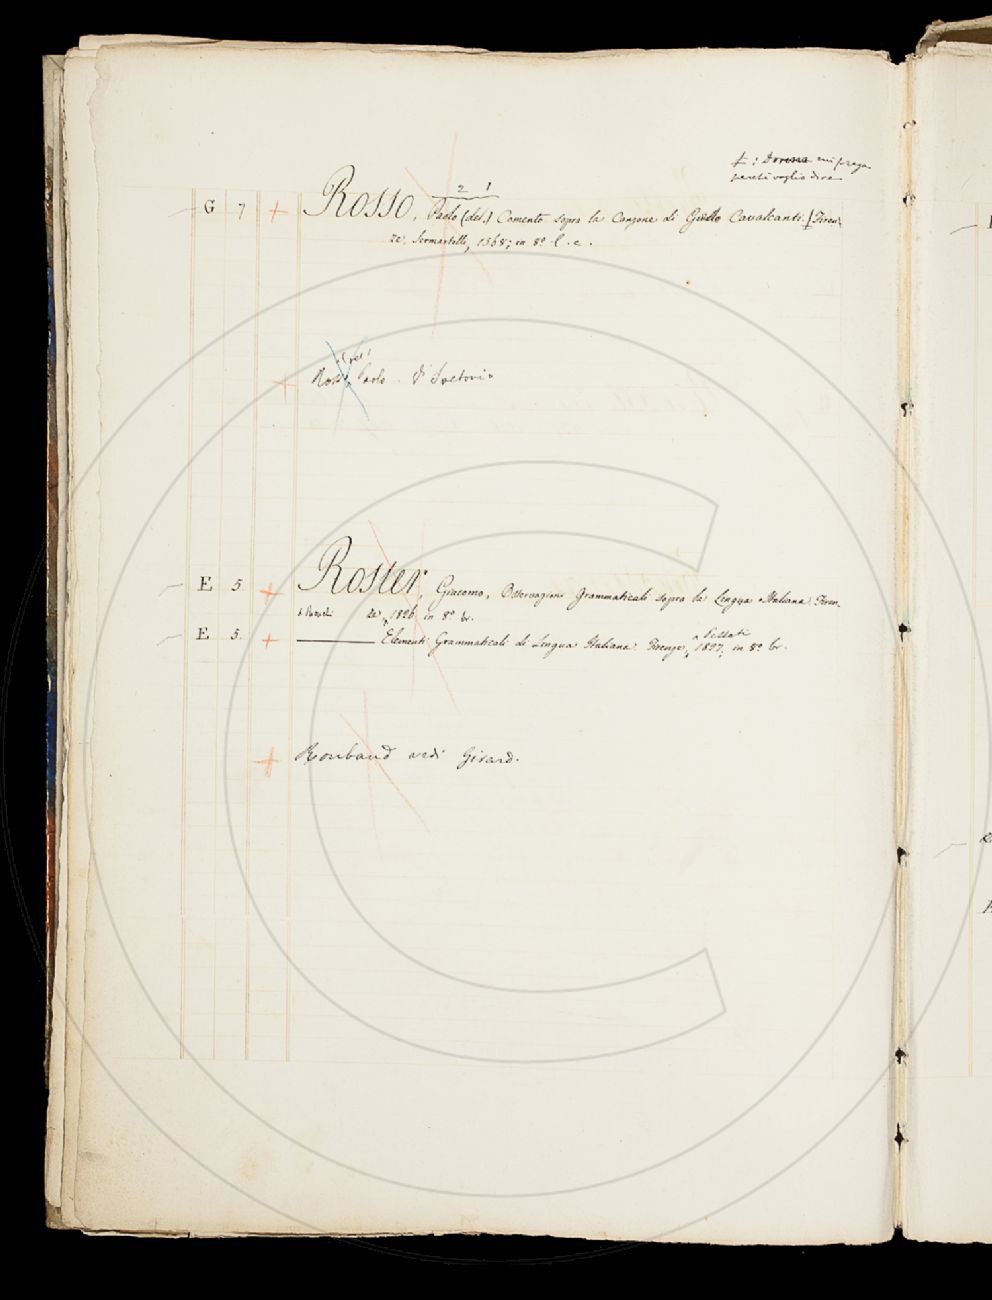 Donna mi prega
perchè voglio dire
2 1
G 7 + Rosso, Paolo (del.) Comento sopra la Canzone di Guido Cavalcanti. Firen-
ze, Sermartelli, 1568; in 8º l. c.
(del)
+ Rosso Paolo
E 5. + Roster, Giacomo, Osservazioni Grammaticali sopra la Lingua Italiana. Firen-
ze, 1826 in 8º br.
Pezzati
E 5. + ——— Elementi Grammaticali di Lingua Italiana. Firenze, 1827; in 8º br.
+ Roubaud vedi Girard.